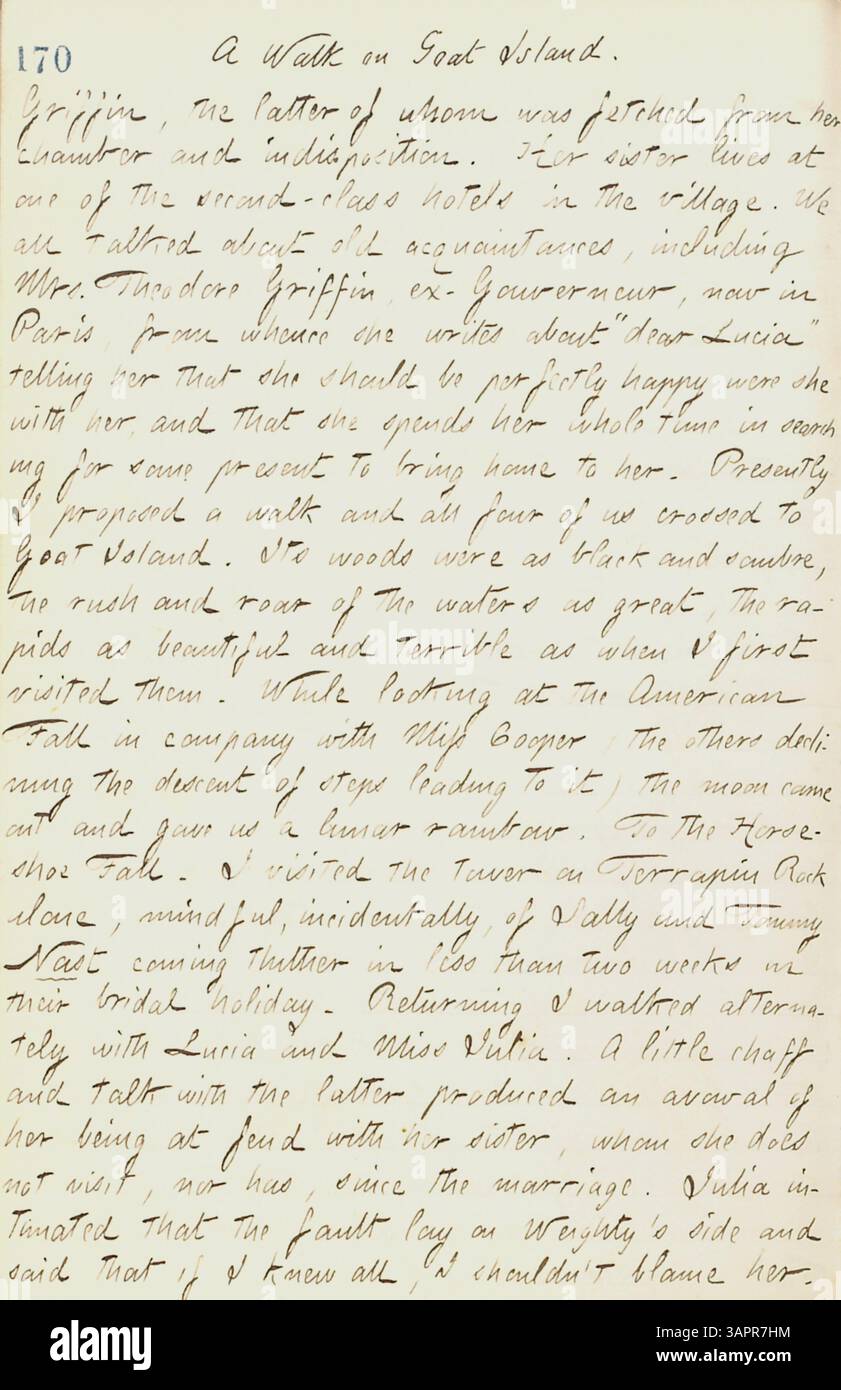 170
A Walk on Goat Island.
Griffin, the latter of whom was fetched from her
chamber and indisposition. Her sister lives at
one of the second-class hotels in the village. We
all talked about old acquaintances, including
Mrs. Theodore Griffin, ex-Gouverneur, now in
Paris, from whence she writes about "dear Lucia"
telling her that she should be perfectly happy were she
with her, and that she spends her whole time in search
ing for some present to bring home to her. Presently
I proposed a walk and all four of us crossed to
Goat Island. Its woods were as black and sombre,
the rush and roar of the waters as great, the ra-
pids as beautiful and terrible as when I first
visited them. While looking at the American
Fall in company with Miss Cooper (the others decli-
ning the descent of steps leading to it) the moon came
out and gave us a lunar rainbow. To the Horse-
shoe Fall. I visited the tower on Terrapin Rock
alone, mindful, incidentally, of Sally and Tommy
Nast coming thither in less than two weeks in
their bridal holiday. Returning I walked alterna-
tely with Lucia and Miss Julia. A little chaff
and talk with the latter produced an avowal of
her being at feud with her sister, whom she does
not visit, nor has, since the marriage. Julia in-
timated that the fault lay on Weighty's side and
said that if I knew all, I shouldn't blame her.
alamy
Image ID: 3APR7HM
www.alamy.com